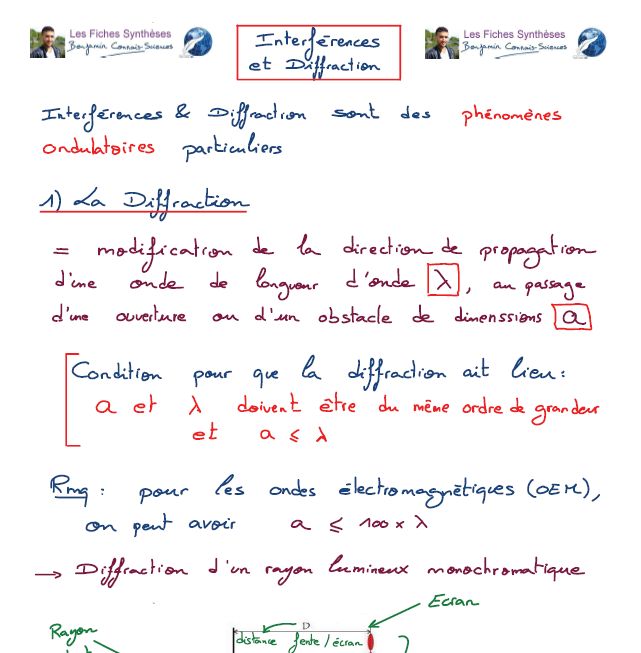 Les Fiches Synthèses
Benjamin Connais-Sciences
Interférences
et Diffraction
Les Fiches Synthèses
Benjamin Connais-Sciences
Interférences & Diffraction sont des phénomènes
ondulatoires particuliers
1) La Diffraction
= modification de la direction de propagation
d'une onde de longueur d'onde λ, au passage
d'une ouverture ou d'un obstacle de dimenssions a
Condition pour que la diffraction ait lieu:
a et λ doivent être du même ordre de grandeur
et a ⩽ λ
Rmq : pour les ondes électromagnétiques (OEM),
on peut avoir a ⩽ 100 × λ
→ Diffraction d'un rayon lumineux monochromatique
Ecran
D
Rayon
distance fente / écran